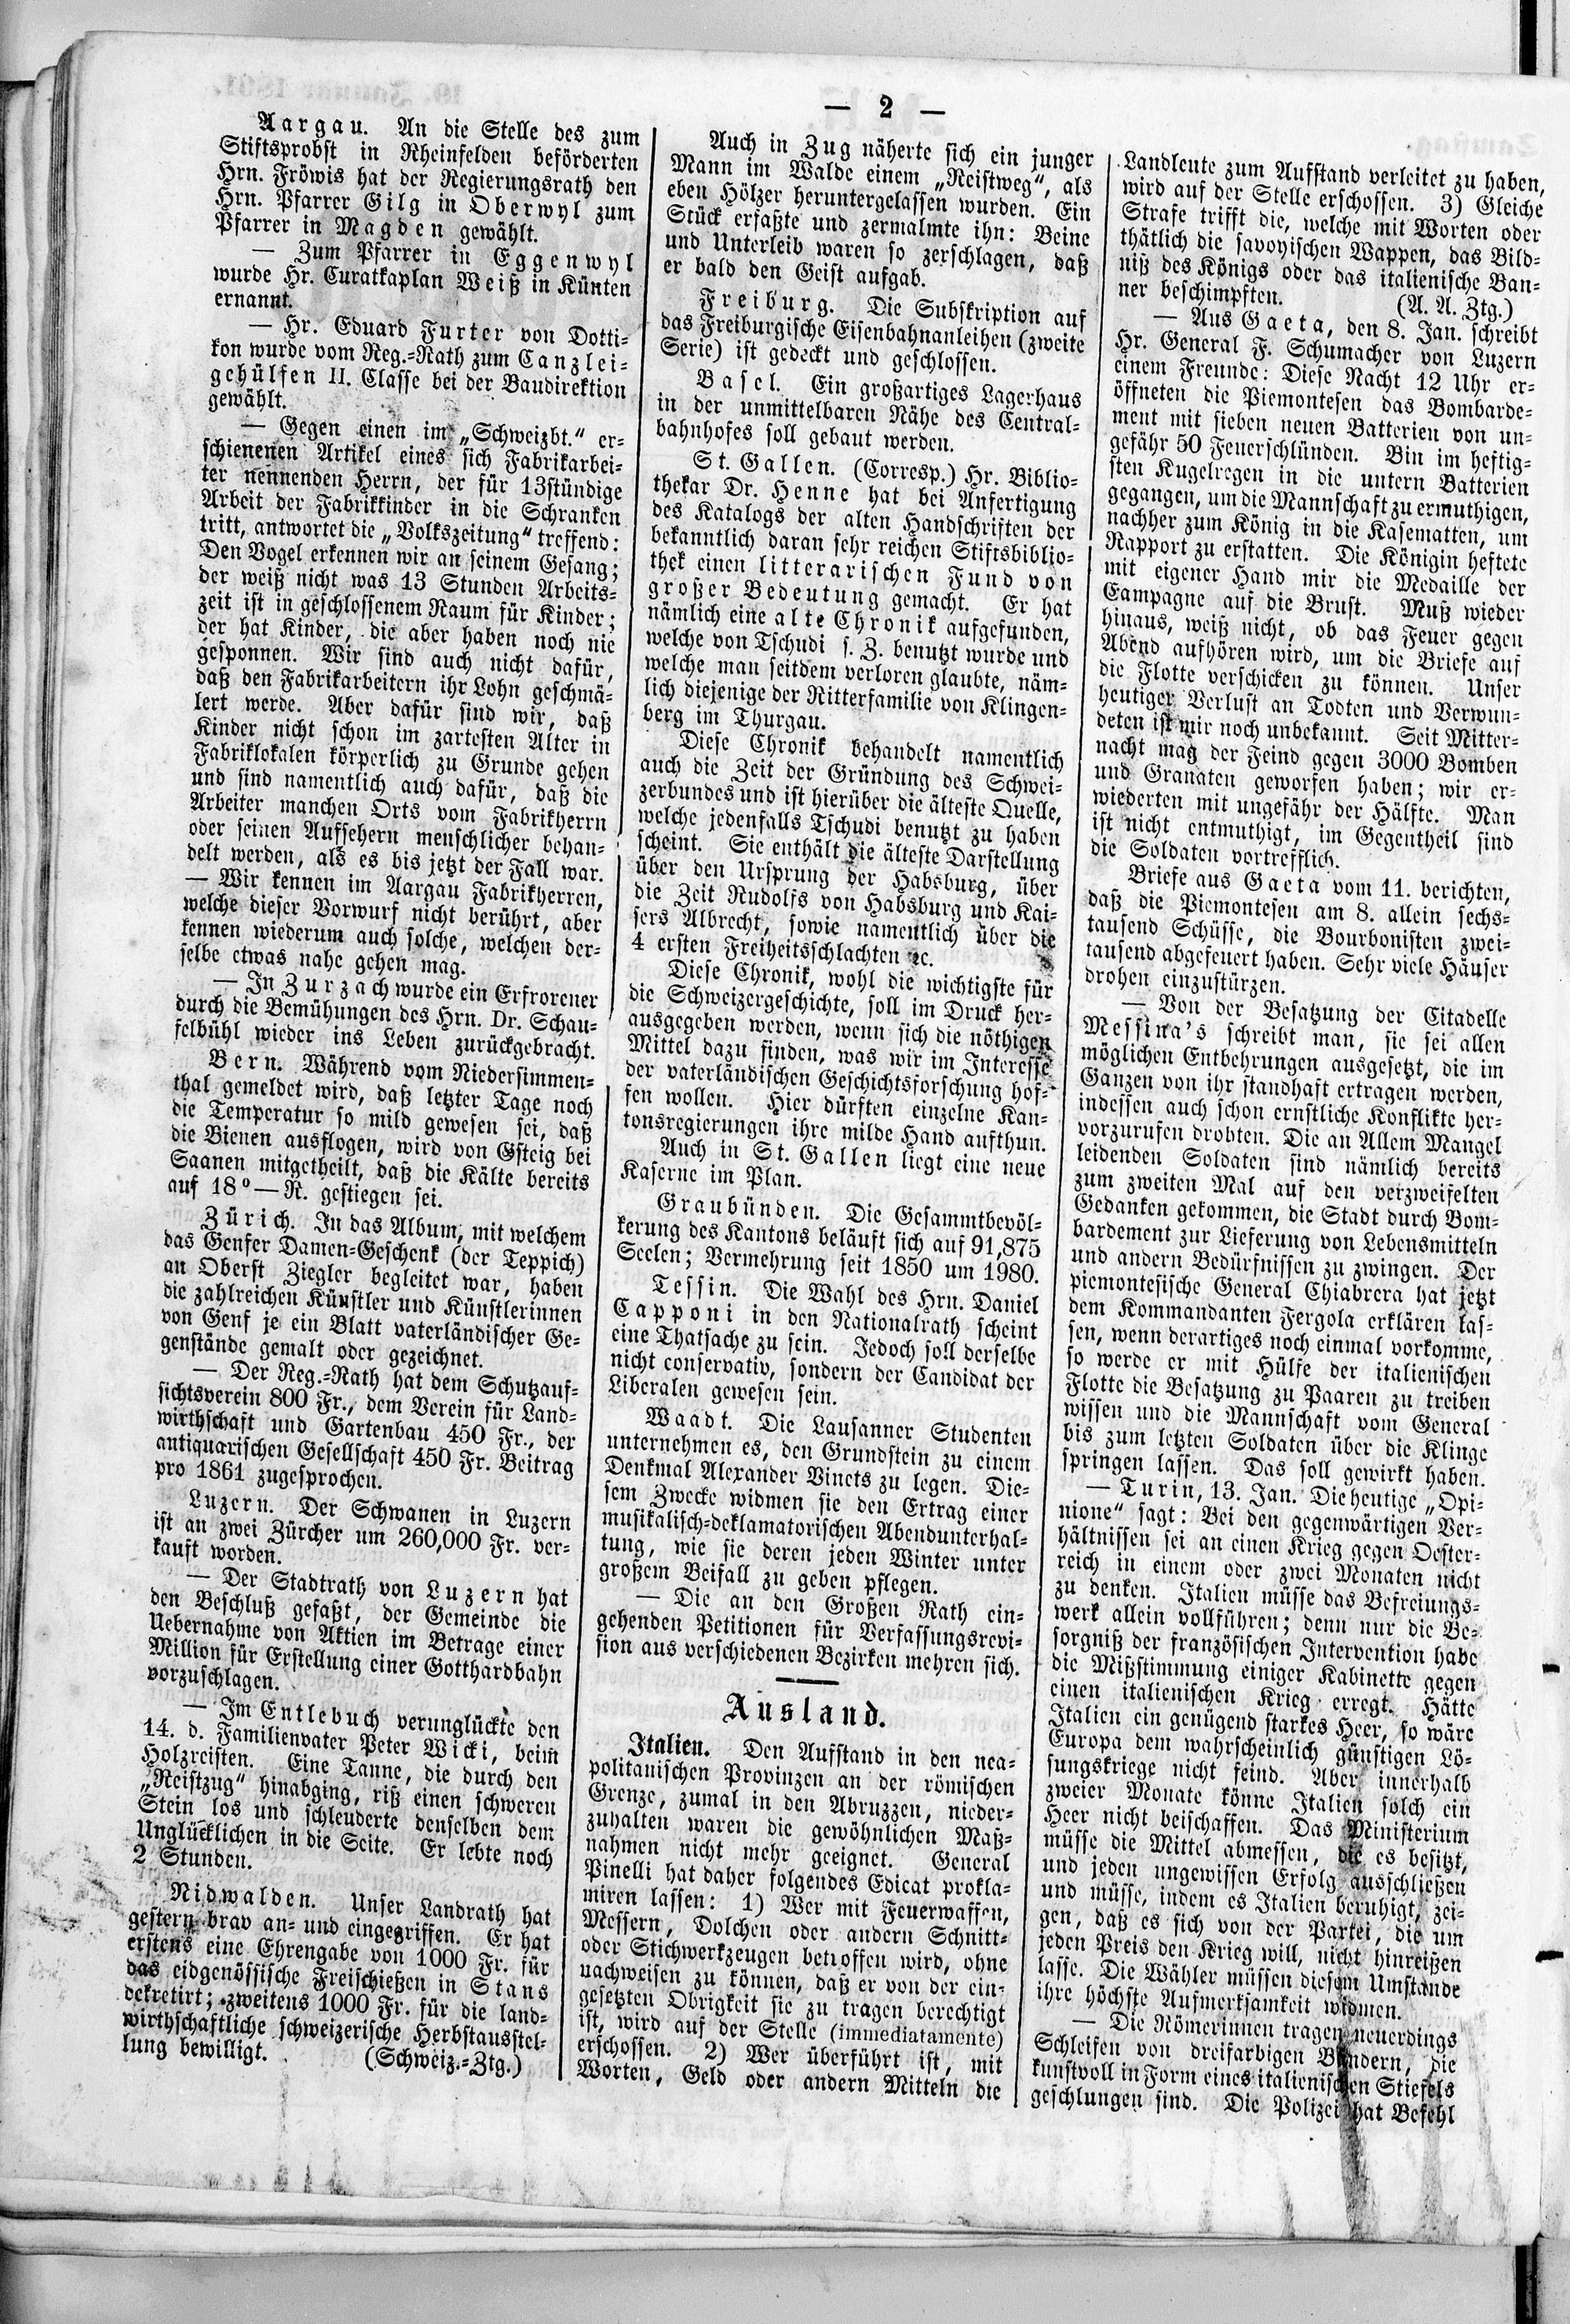 — 2 —
Aargau. An die Stelle des zum
Stiftsprobst in Rheinfelden beförderten
Hrn. Fröwis hat der Regierungsrath den
Hrn. Pfarrer Gilg in Oberwyl zum
Pfarrer in Magden gewählt.
— Zum Pfarrer in Eggenwyl
wurde Hr. Curatkaplan Weiß in Künten
ernannt.
— Hr. Eduard Furter von Dotti-
kon wurde vom Reg.-Rath zum Canzlei-
gehülfen II. Classe bei der Baudirektion
gewählt.
— Gegen einen im „Schweizbt.“ er-
schienenen Artikel eines sich Fabrikarbei-
ter nennenden Herrn, der für 13stündige
Arbeit der Fabrikkinder in die Schranken
tritt, antwortet die „Volkszeitung“ treffend:
Den Vogel erkennen wir an seinem Gesang;
der weiß nicht was 13 Stunden Arbeits-
zeit ist in geschlossenem Raum für Kinder;
der hat Kinder, die aber haben noch nie
gesponnen. Wir sind auch nicht dafür,
daß den Fabrikarbeitern ihr Lohn geschmä-
lert werde. Aber dafür sind wir, daß
Kinder nicht schon im zartesten Alter in
Fabriklokalen körperlich zu Grunde gehen
und sind namentlich auch dafür, daß die
Arbeiter manchen Orts vom Fabrikherrn
oder seinen Aufsehern menschlicher behan-
delt werden, als es bis jetzt der Fall war.
— Wir kennen im Aargau Fabrikherren,
welche dieser Vorwurf nicht berührt, aber
kennen wiederum auch solche, welchen der-
selbe etwas nahe gehen mag.
— In Zurzach wurde ein Erfrorener
durch die Bemühungen des Hrn. Dr. Schau-
felbühl wieder ins Leben zurückgebracht.
Bern. Während vom Niedersimmen-
thal gemeldet wird, daß letzter Tage noch
die Temperatur so mild gewesen sei, daß
die Bienen ausflogen, wird von Gsteig bei
Saanen mitgetheilt, daß die Kälte bereits
auf 18° — R. gestiegen sei.
Zürich. In das Album, mit welchem
das Genfer Damen-Geschenk (der Teppich)
an Oberst Ziegler begleitet war, haben
die zahlreichen Künstler und Künstlerinnen
von Genf je ein Blatt vaterländischer Ge-
genstände gemalt oder gezeichnet.
— Der Reg.-Rath hat dem Schutzauf-
sichtsverein 800 Fr., dem Verein für Land-
wirthschaft und Gartenbau 450 Fr., der
antiquarischen Gesellschaft 450 Fr. Beitrag
pro 1861 zugesprochen.
Luzern. Der Schwanen in Luzern
ist an zwei Zürcher um 260,000 Fr. ver-
kauft worden.
— Der Stadtrath von Luzern hat
den Beschluß gefaßt, der Gemeinde die
Uebernahme von Aktien im Betrage einer
Million für Erstellung einer Gotthardbahn
vorzuschlagen.
— Im Entlebuch verunglückte den
14. d. Familienvater Peter Wicki, beim
Holzreisten. Eine Tanne, die durch den
„Reistzug“ hinabging, riß einen schweren
Stein los und schleuderte denselben dem
Unglücklichen in die Seite. Er lebte noch
2 Stunden.
Nidwalden. Unser Landrath hat
gestern brav an- und eingegriffen. Er hat
erstens eine Ehrengabe von 1000 Fr. für
das eidgenössische Freischießen in Stans
dekretirt; zweitens 1000 Fr. für die land-
wirthschaftliche schweizerische Herbstausstel-
lung bewilligt. (Schweiz.-Ztg.)
Auch in Zug näherte sich ein junger
Mann im Walde einem „Reistweg“, als
eben Hölzer heruntergelassen wurden. Ein
Stück erfaßte und zermalmte ihn: Beine
und Unterleib waren so zerschlagen, daß
er bald den Geist aufgab.
Freiburg. Die Subskription auf
das Freiburgische Eisenbahnanleihen (zweite
Serie) ist gedeckt und geschlossen.
Basel. Ein großartiges Lagerhaus
in der unmittelbaren Nähe des Central-
bahnhofes soll gebaut werden.
St. Gallen. (Corresp.) Hr. Biblio-
thekar Dr. Henne hat bei Anfertigung
des Katalogs der alten Handschriften der
bekanntlich daran sehr reichen Stiftsbiblio-
thek einen litterarischen Fund von
großer Bedeutung gemacht. Er hat
nämlich eine alte Chronik aufgefunden,
welche von Tschudi s. Z. benutzt wurde und
welche man seitdem verloren glaubte, näm-
lich diejenige der Ritterfamilie von Klingen-
berg im Thurgau.
Diese Chronik behandelt namentlich
auch die Zeit der Gründung des Schwei-
zerbundes und ist hierüber die älteste Quelle,
welche jedenfalls Tschudi benutzt zu haben
scheint. Sie enthält die älteste Darstellung
über den Ursprung der Habsburg, über
die Zeit Rudolfs von Habsburg und Kai-
sers Albrecht, sowie namentlich über die
4 ersten Freiheitsschlachten ꝛc.
Diese Chronik, wohl die wichtigste für
die Schweizergeschichte, soll im Druck her-
ausgegeben werden, wenn sich die nöthigen
Mittel dazu finden, was wir im Interesse
der vaterländischen Geschichtsforschung hof-
fen wollen. Hier dürften einzelne Kan-
tonsregierungen ihre milde Hand aufthun.
Auch in St. Gallen liegt eine neue
Kaserne im Plan.
Graubünden. Die Gesammtbevöl-
kerung des Kantons beläuft sich auf 91,875
Seelen; Vermehrung seit 1850 um 1980.
Tessin. Die Wahl des Hrn. Daniel
Capponi in den Nationalrath scheint
eine Thatsache zu sein. Jedoch soll derselbe
nicht conservativ, sondern der Candidat der
Liberalen gewesen sein.
Waadt. Die Lausanner Studenten
unternehmen es, den Grundstein zu einem
Denkmal Alexander Vinets zu legen. Die-
sem Zwecke widmen sie den Ertrag einer
musikalisch-deklamatorischen Abendunterhal-
tung, wie sie deren jeden Winter unter
großem Beifall zu geben pflegen.
— Die an den Großen Rath ein-
gehenden Petitionen für Verfassungsrevi-
sion aus verschiedenen Bezirken mehren sich.
Ausland.
Italien. Den Aufstand in den nea-
politanischen Provinzen an der römischen
Grenze, zumal in den Abruzzen, nieder-
zuhalten waren die gewöhnlichen Maß-
nahmen nicht mehr geeignet. General
Pinelli hat daher folgendes Edicat prokla-
miren lassen: 1) Wer mit Feuerwaffen,
Messern, Dolchen oder andern Schnitt-
oder Stichwerkzeugen betroffen wird, ohne
nachweisen zu können, daß er von der ein-
gesetzten Obrigkeit sie zu tragen berechtigt
ist, wird auf der Stelle (immediatamente)
erschossen. 2) Wer überführt ist, mit
Worten, Geld oder andern Mitteln die
Landleute zum Aufstand verleitet zu haben,
wird auf der Stelle erschossen. 3) Gleiche
Strafe trifft die, welche mit Worten oder
thätlich die savoyischen Wappen, das Bild-
niß des Königs oder das italienische Ban-
ner beschimpften. (A. A. Ztg.)
— Aus Gaeta, den 8. Jan. schreibt
Hr. General F. Schumacher von Luzern
einem Freunde: Diese Nacht 12 Uhr er-
öffneten die Piemontesen das Bombarde-
ment mit sieben neuen Batterien von un-
gefähr 50 Feuerschlünden. Bin im heftig-
sten Kugelregen in die untern Batterien
gegangen, um die Mannschaft zu ermuthigen,
nachher zum König in die Kasematten, um
Rapport zu erstatten. Die Königin heftete
mit eigener Hand mir die Medaille der
Campagne auf die Brust. Muß wieder
hinaus, weiß nicht, ob das Feuer gegen
Abend aufhören wird, um die Briefe auf
die Flotte verschicken zu können. Unser
heutiger Verlust an Todten und Verwun-
deten ist mir noch unbekannt. Seit Mitter-
nacht mag der Feind gegen 3000 Bomben
und Granaten geworfen haben; wir er-
wiederten mit ungefähr der Hälfte. Man
ist nicht entmuthigt, im Gegentheil sind
die Soldaten vortrefflich.
Briefe aus Gaeta vom 11. berichten,
daß die Piemontesen am 8. allein sechs-
tausend Schüsse, die Bourbonisten zwei-
tausend abgefeuert haben. Sehr viele Häuser
drohen einzustürzen.
— Von der Besatzung der Citadelle
Messina's schreibt man, sie sei allen
möglichen Entbehrungen ausgesetzt, die im
Ganzen von ihr standhaft ertragen werden,
indessen auch schon ernstliche Konflikte her-
vorzurufen drohten. Die an Allem Mangel
leidenden Soldaten sind nämlich bereits
zum zweiten Mal auf den verzweifelten
Gedanken gekommen, die Stadt durch Bom-
bardement zur Lieferung von Lebensmitteln
und andern Bedürfnissen zu zwingen. Der
piemontesische General Chiabrera hat jetzt
dem Kommandanten Fergola erklären las-
sen, wenn derartiges noch einmal vorkomme,
so werde er mit Hülfe der italienischen
Flotte die Besatzung zu Paaren zu treiben
wissen und die Mannschaft vom General
bis zum letzten Soldaten über die Klinge
springen lassen. Das soll gewirkt haben.
— Turin, 13. Jan. Die heutige „Opi-
nione“ sagt: Bei den gegenwärtigen Ver-
hältnissen sei an einen Krieg gegen Oester-
reich in einem oder zwei Monaten nicht
zu denken. Italien müsse das Befreiungs-
werk allein vollführen; denn nur die Be-
sorgniß der französischen Intervention habe
die Mißstimmung einiger Kabinette gegen
einen italienischen Krieg erregt. Hätte
Italien ein genügend starkes Heer, so wäre
Europa dem wahrscheinlich günstigen Lö-
sungskriege nicht feind. Aber innerhalb
zweier Monate könne Italien solch ein
Heer nicht beischaffen. Das Ministerium
müsse die Mittel abmessen, die es besitzt,
und jeden ungewissen Erfolg ausschließen
und müsse, indem es Italien beruhigt, zei-
gen, daß es sich von der Partei, die um
jeden Preis den Krieg will, nicht hinreißen
lasse. Die Wähler müssen diesem Umstande
ihre höchste Aufmerksamkeit widmen.
— Die Römerinnen tragen neuerdings
Schleifen von dreifarbigen Bändern, die
kunstvoll in Form eines italienischen Stiefels
geschlungen sind. Die Polizei hat Befehl